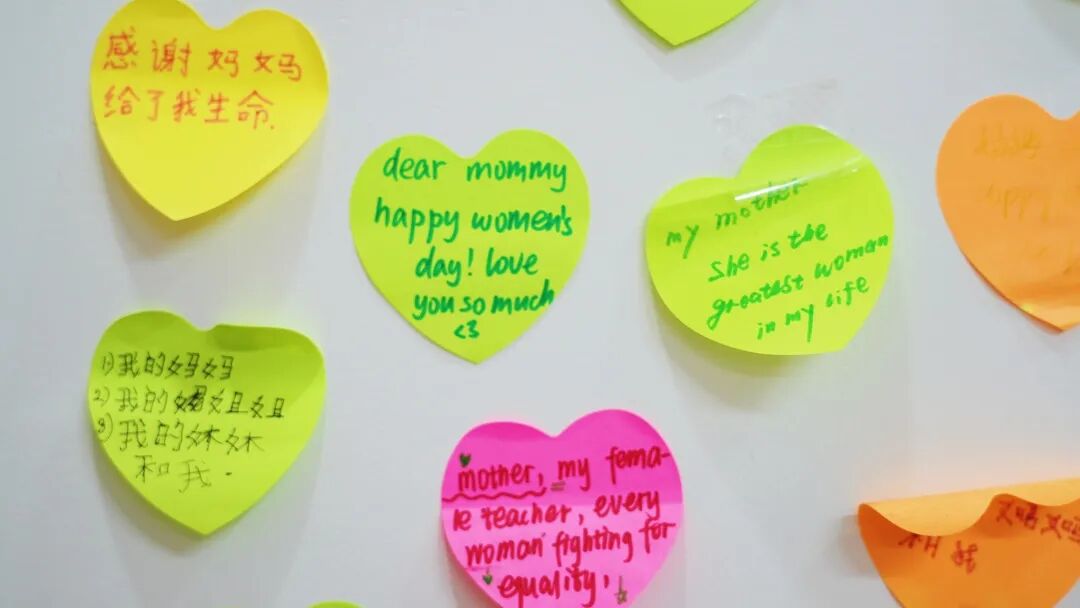 感谢妈妈
给了我生命.
dear mommy
happy women's
day! love
you so much
<3
my mother
she is the
greatest woman
in my life
happy
1) 我的妈妈
2) 我的姐姐
3) 我的妹妹
和我.
mother, my fema-
le teacher, every
woman fighting for
equality.